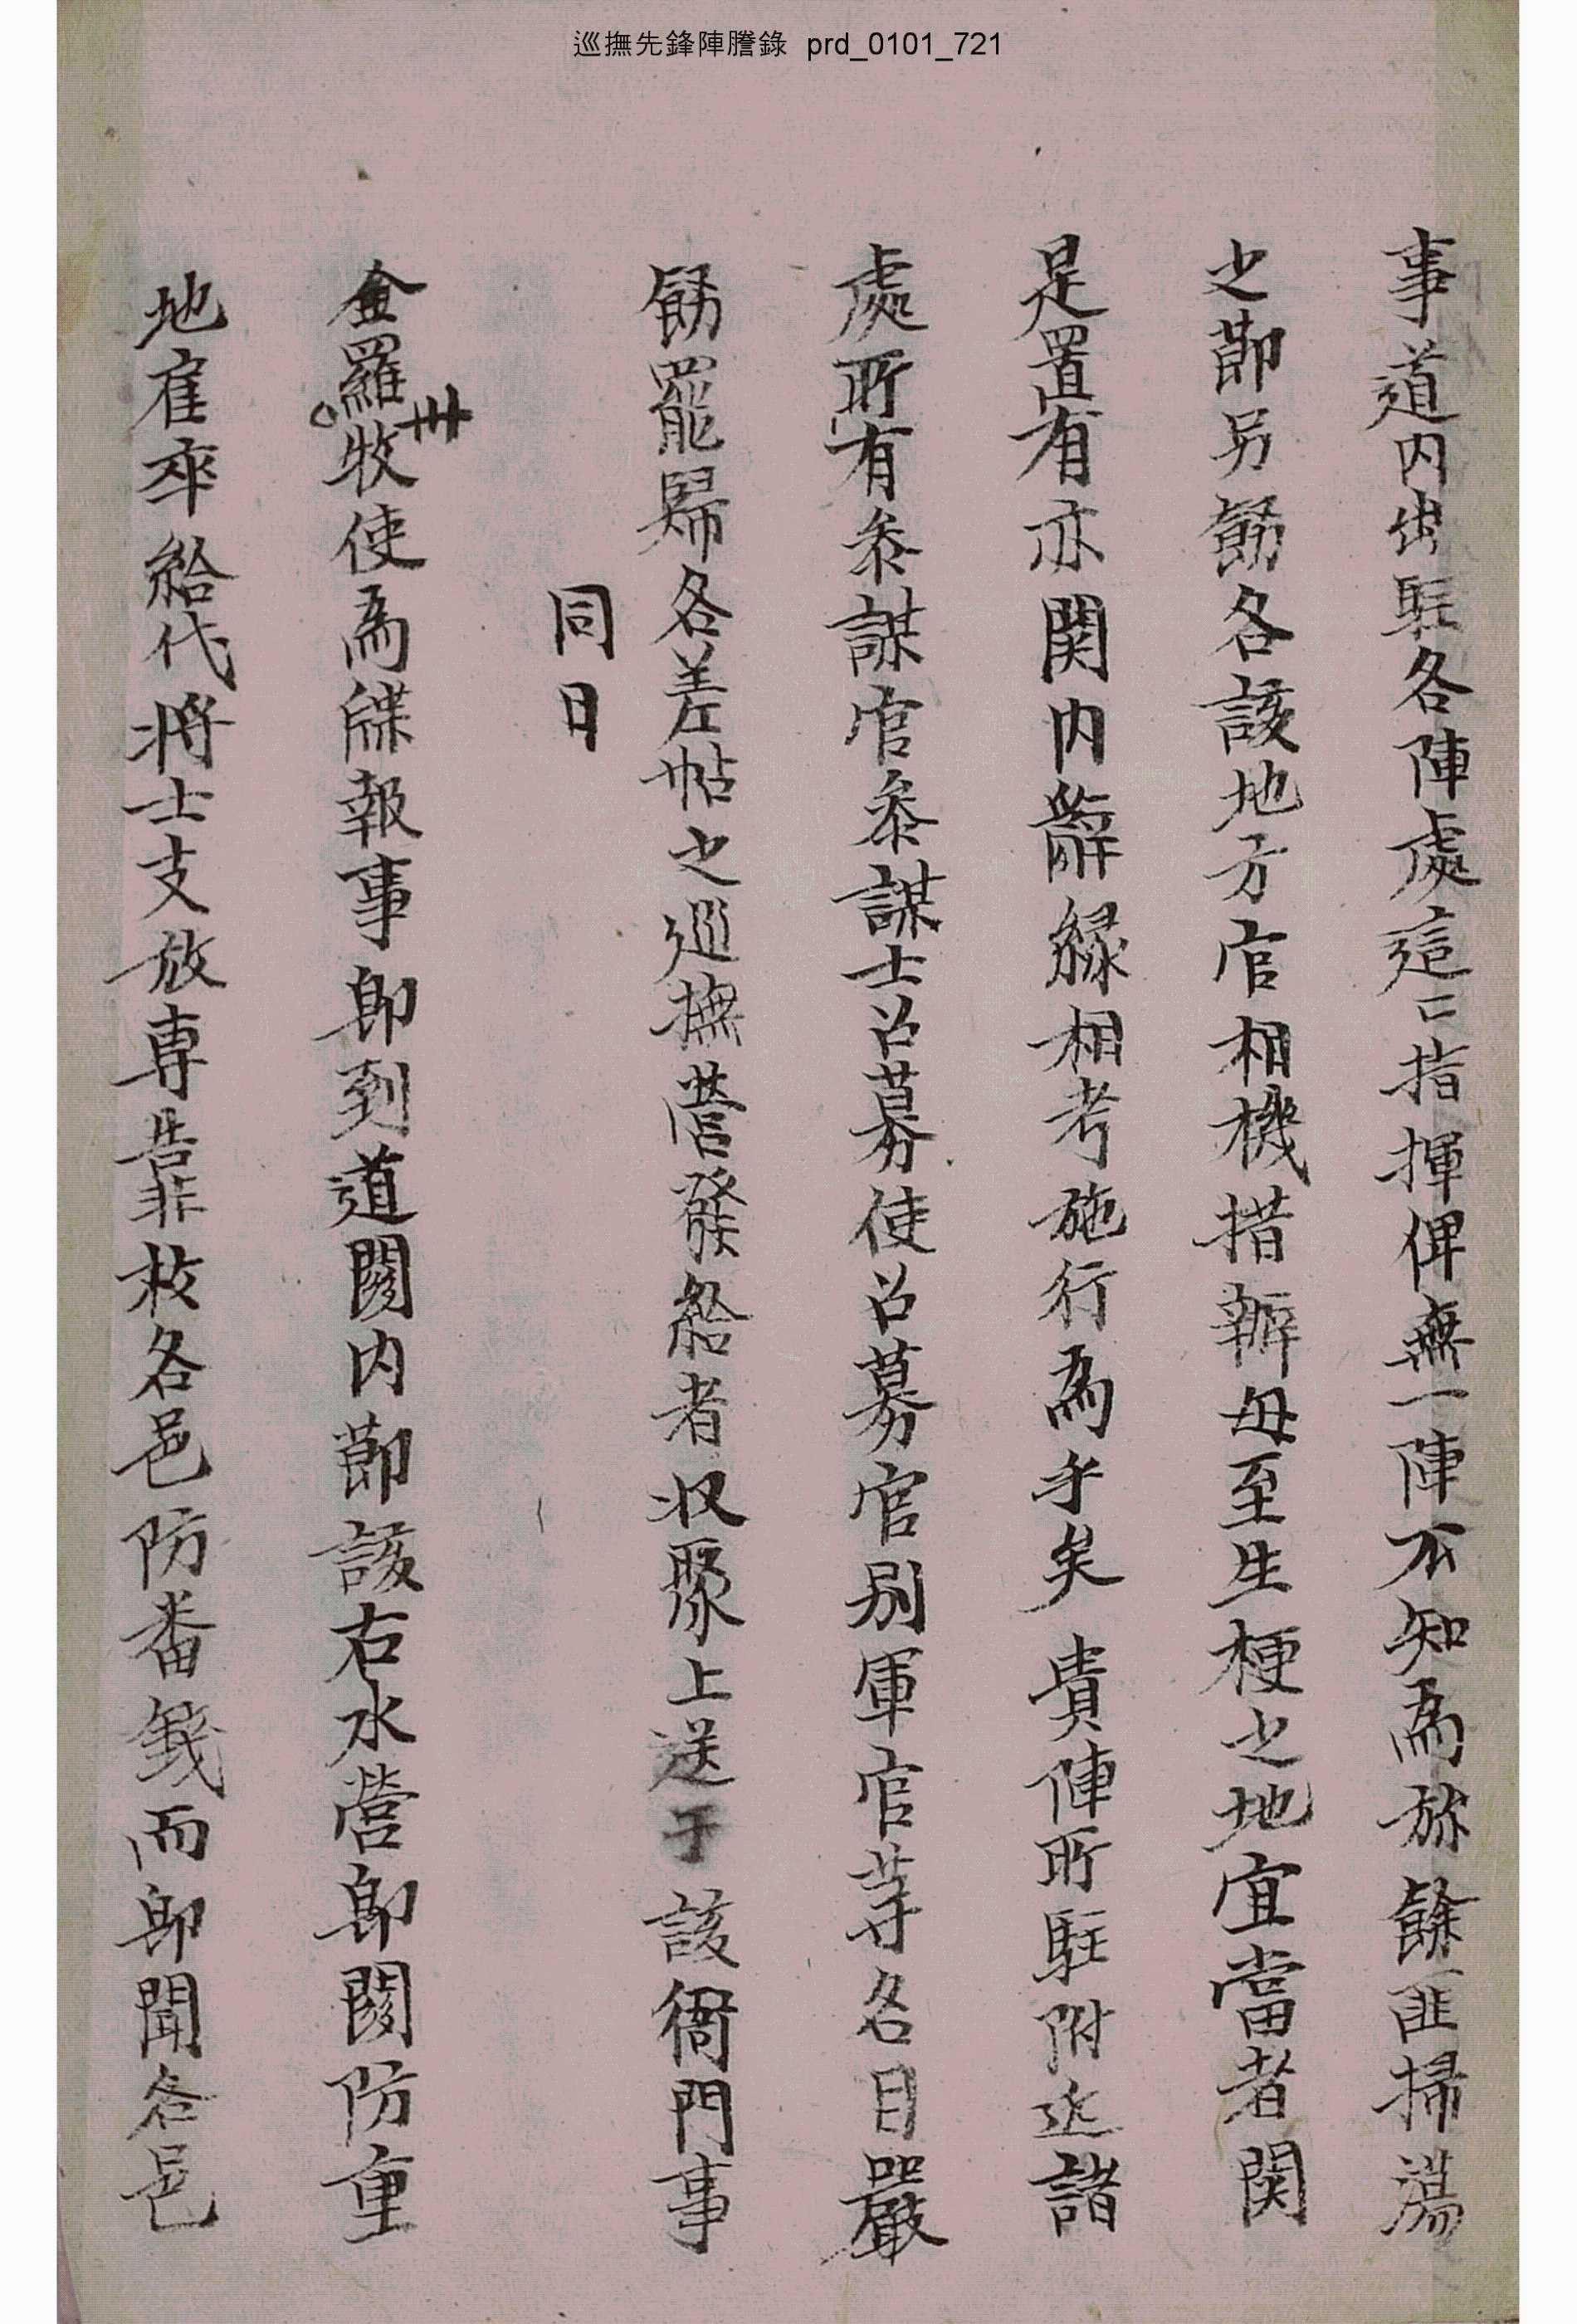 巡撫先鋒陣謄錄 prd_0101_721
事道內出駐各陣處這這指揮俾無一陣不知為旀餘匪掃蕩
之節另飭各該地方官相機措辦毋至生梗之地宜當者関
是置有亦関內辭緣相考施行為乎矣貴陣所駐附近諸
處所有叅謀官叅謀士召募使召募官別軍官等名目嚴
飭罷歸各差帖之巡撫營發給者収聚上送于該衙門事
同日
全羅州牧使為牒報事卽到道關內節該右水營卽關防重
地雇卒給代將士支放専靠於各邑防番錢而卽聞各邑